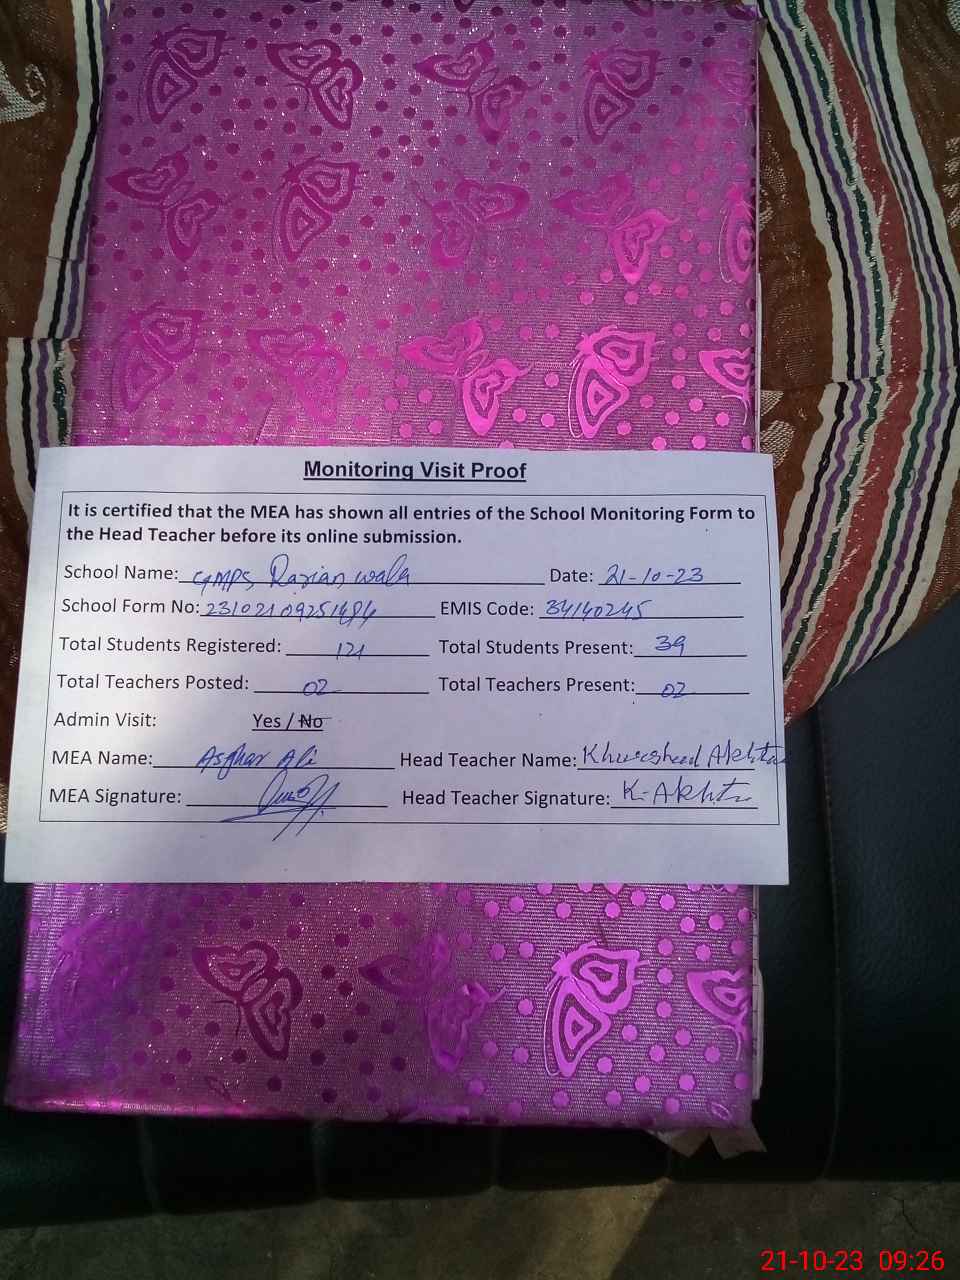 Monitoring Visit Proof
It is certified that the MEA has shown all entries of the School Monitoring Form to
the Head Teacher before its online submission.
School Name: GMPS Razian wala Date: 21-10-23
School Form No: 23102109251484 EMIS Code: 34140245
Total Students Registered: 121 Total Students Present: 39
Total Teachers Posted: 02 Total Teachers Present: 02
Admin Visit: Yes / No
MEA Name: Asghar Ali Head Teacher Name: Khursheed Akhtar
MEA Signature: Head Teacher Signature: K. Akhtar
21-10-23 09:26